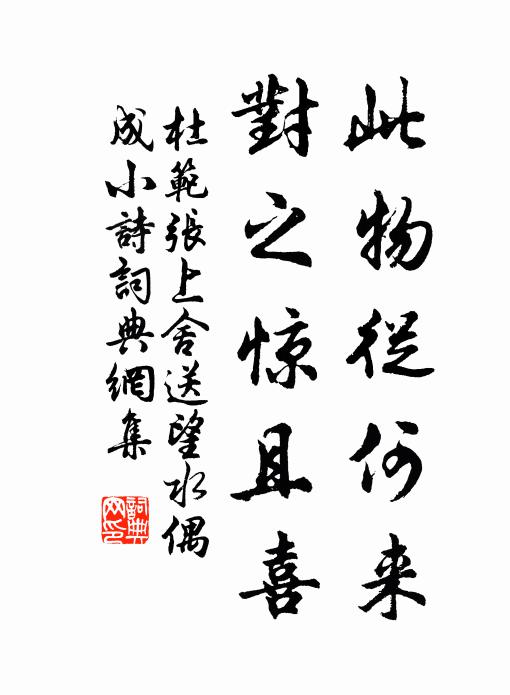 此物從何来
對之惊且喜
杜範張上舍送望水偶
成小詩詞典網集
詞典
网印